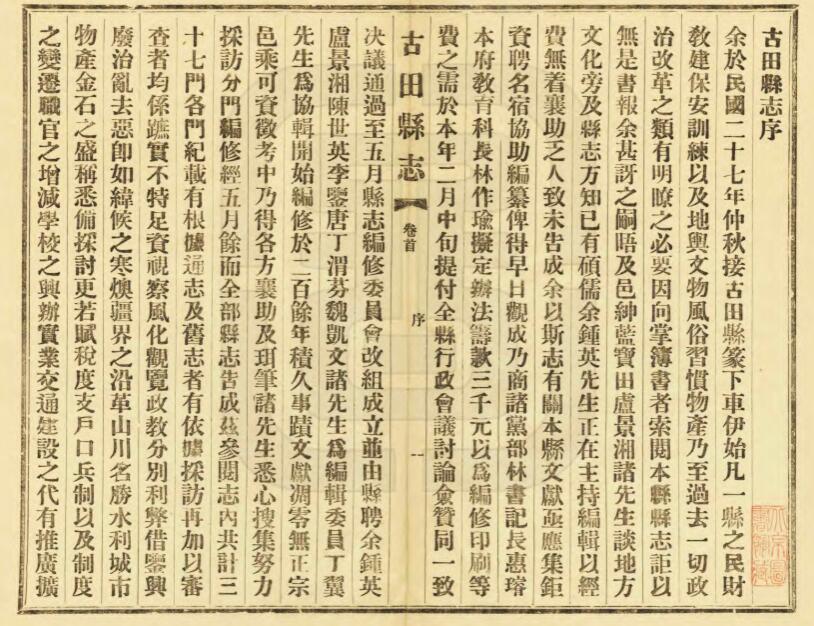 古田縣志序
余於民國二十七年仲秋接古田縣篆下車伊始凡一縣之民財
教建保安訓練以及地輿文物風俗習慣物產乃至過去一切政
治改革之類有明瞭之必要因向掌簿書者索閱本縣縣志詎以
無是書報余甚訝之嗣晤及邑紳藍寶田盧景湘諸先生談地方
文化旁及縣志方知已有碩儒余鍾英先生正在主持編輯以經
費無着襄助乏人致未告成余以斯志有關本縣文獻亟應集鉅
資聘名宿協助編纂俾得早日觀成乃商諸黨部林書記長惠瑢
本府教育科長林作瑜擬定辦法籌款三千元以爲編修印刷等
費之需於本年二月中旬提付全縣行政會議討論僉贊同一致
古田縣志
卷首
序
一
决議通過至五月縣志編修委員會改組成立並由縣聘余鍾英
盧景湘陳世英李鑒唐丁渭芬魏凱文諸先生爲編輯委員丁翼
先生爲協輯開始編修於二百餘年積久事蹟文獻凋零無正宗
邑乘可資徵考中乃得各方襄助及珥筆諸先生悉心搜集努力
採訪分門編修經五月餘而全部縣志告成茲參閱志內共計三
十七門各門紀載有根據通志及舊志者有依據採訪再加以審
查者均係蹠實不特足資視察風化觀覽政教分別利弊借鑒興
廢治亂去惡卽如緯候之寒燠疆界之沿革山川名勝水利城市
物產金石之盛稱悉備採討更若賦稅度支戶口兵制以及制度
之變遷職官之增減學校之興辦實業交通建設之代有推廣擴